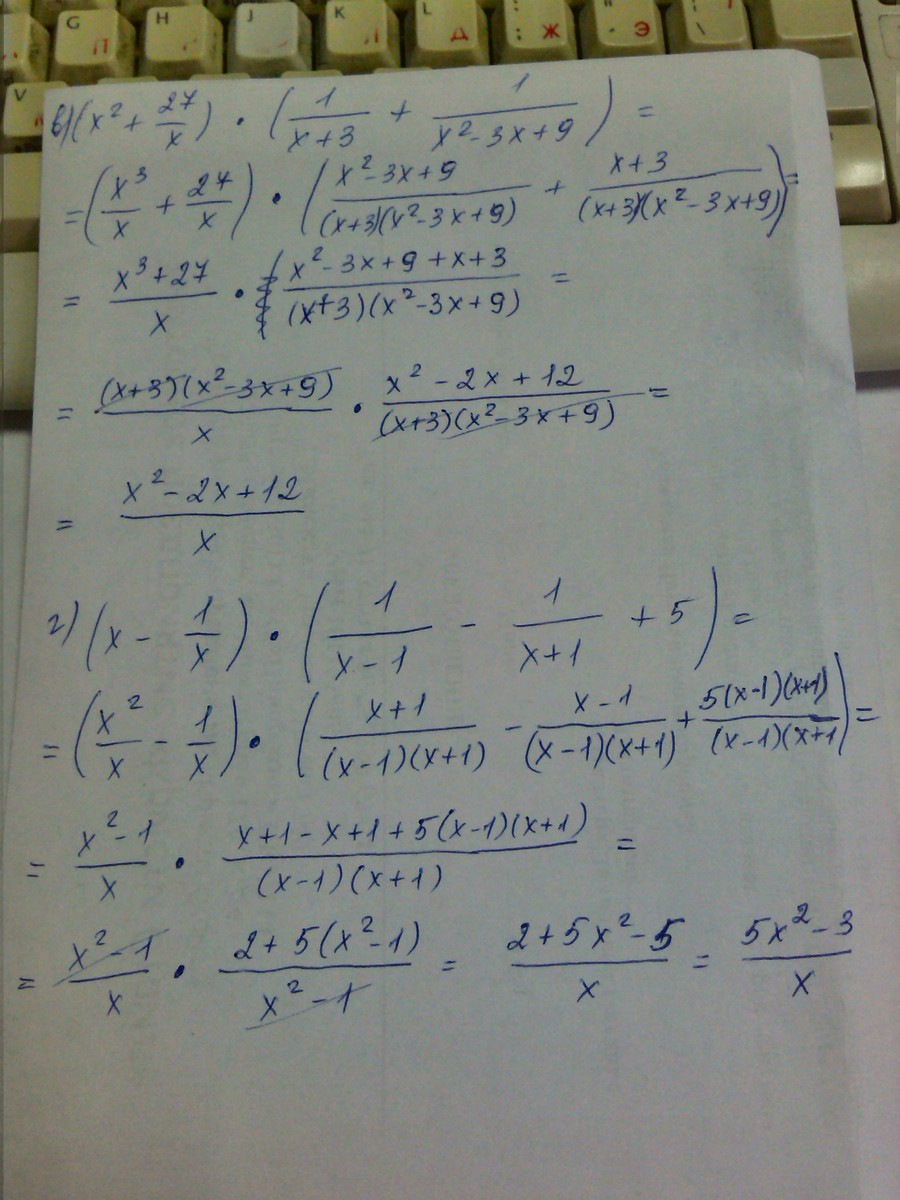 G П H Р J K Л L Д : ; Ж " ' Э | \
V
в) (x² + 27/x) · (1/(x+3) + 1/(x² - 3x + 9)) =
= (x³/x + 27/x) · ((x² - 3x + 9)/((x+3)(x² - 3x + 9)) + (x+3)/((x+3)(x² - 3x + 9))) =
= (x³ + 27)/x · (x² - 3x + 9 + x + 3)/((x+3)(x² - 3x + 9)) =
= ((x+3)(x² - 3x + 9))/x · (x² - 2x + 12)/((x+3)(x² - 3x + 9)) =
= (x² - 2x + 12)/x
г) (x - 1/x) · (1/(x-1) - 1/(x+1) + 5) =
= (x²/x - 1/x) · ((x+1)/((x-1)(x+1)) - (x-1)/((x-1)(x+1)) + 5(x-1)(x+1)/((x-1)(x+1))) =
= (x² - 1)/x · (x+1 - x+1 + 5(x-1)(x+1))/((x-1)(x+1)) =
= (x² - 1)/x · (2 + 5(x² - 1))/(x² - 1) = (2 + 5x² - 5)/x = (5x² - 3)/x